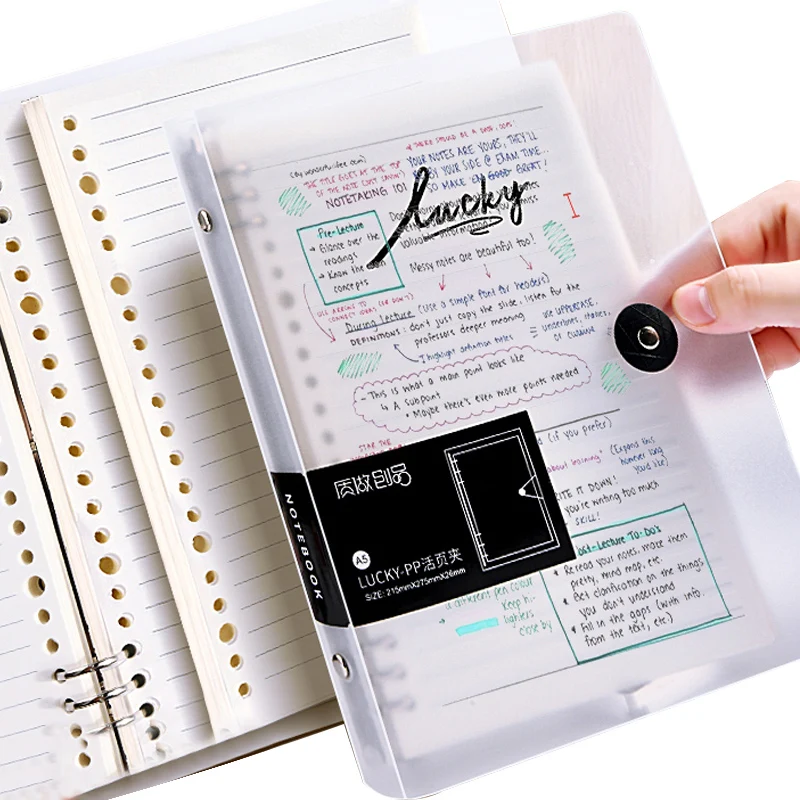 (by wonderful-idea.com)
THE TITLE GOES AT THE TOP
OF THE NOTE (JUST SAYIN')
NOTETAKING 101
THERE SHOULD BE A
YOUR NOTES ARE YOURS, THEY'LL
BY YOUR SIDE @ EXAM TIME...
SO MAKE 'EM GOOD GREAT!
Lucky
Pre-Lecture
→ Glance over the
readings
→ Know the
concepts
valuable information!
Messy notes are beautiful too!
USE ARROWS TO
CONNECT IDEAS (OR DON'T)
During lecture (Use a simple font for headers)
DEFINITIONS: don't just copy the slide, listen for the
professors deeper meaning
I highlight definition notes
use UPPERCASE,
underlines, italics,
or cursive
- This is what a main point looks like
↳ A subpoint
• Maybe there's even more points needed
STAR THE
(if you prefer)
about learning" (Expand this
however long
you'd like)
WRITE IT DOWN!
you're writing too much
SKILL!
质做创品
A5
LUCKY-PP活页夹
SIZE: 215mmX275mmX26mm
NOTEBOOK
Post-Lecture To-Do's
Reread your notes, make them
pretty, mind map, etc.
Get clarification on the things
you don't understand
Fill in the gaps (with info.
from the text, etc.)
a different pen colour
Keep hi-
lighters
close by